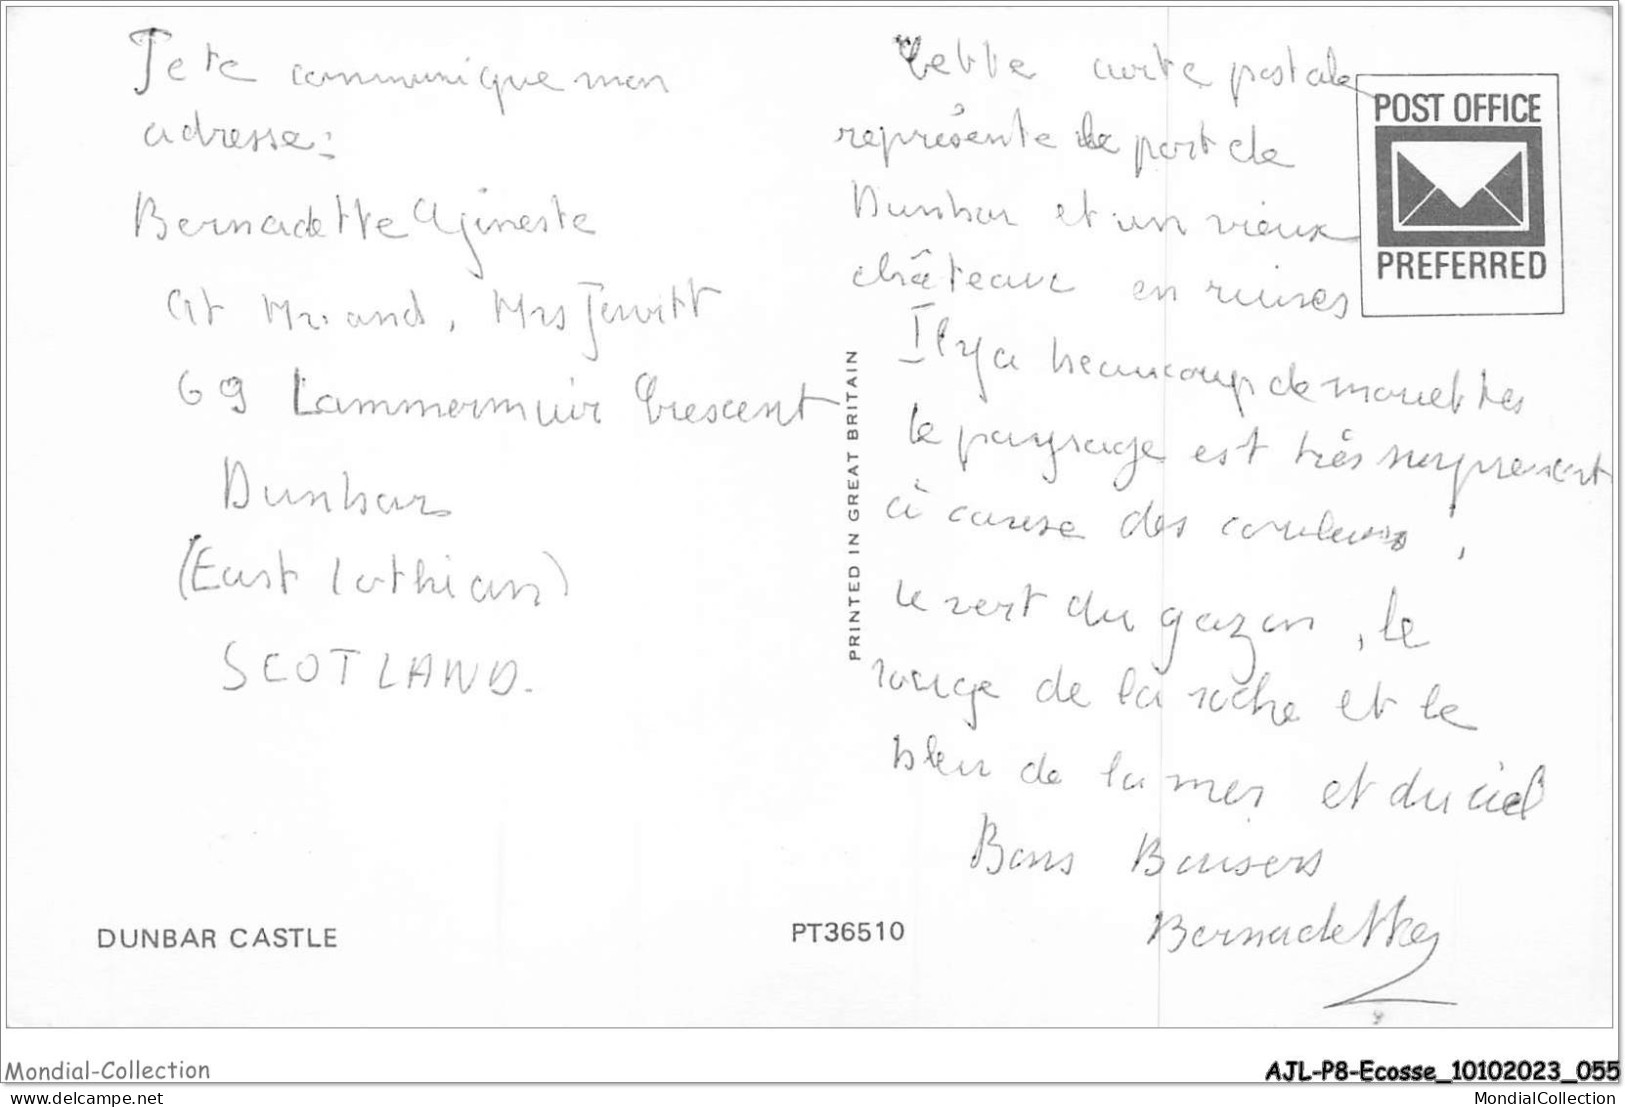 Je te communique mon
adresse:
Bernadette Gineste
At Mr and, Mrs Jewitt
69 Lammermuir Crescent
Dunbar
(East Lothian)
SCOTLAND.
DUNBAR CASTLE
PT36510
PRINTED IN GREAT BRITAIN
Cette carte postale
représente le port de
Dunbar et un vieux
château en ruines
Il y a beaucoup de mouettes
le paysage est très surprenant
à cause des couleurs,
le vert du gazon, le
rouge de la roche et le
bleu de la mer et du ciel
Bons Baisers
Bernadette
POST OFFICE
PREFERRED
Mondial-Collection
AJL-P8-Ecosse_10102023_055
delcampe.net
MondialCollection